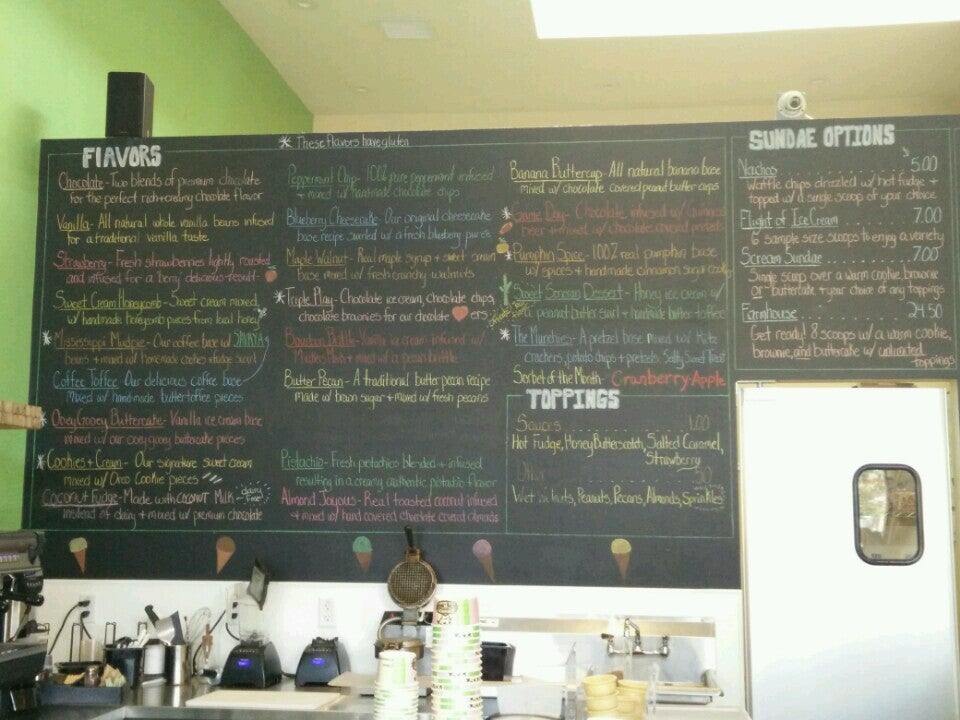 FLAVORS
* These Flavors have gluten
Chocolate - Two blends of premium chocolate
for the perfect rich + creamy Chocolate flavor
Vanilla - All natural whole vanilla beans infused
for a traditional vanilla taste
Strawberry - Fresh strawberries lightly roasted
and infused for a berry delicious result
Sweet Cream Honeycomb - Sweet cream mixed
w/ handmade honeycomb pieces from local honey
* Mississippi Mudpie - Our coffee base w/
beans + mixed w/ homemade cookies + fudge swirl
Coffee Toffee Our delicious coffee base
mixed w/ hand-made butter toffee pieces
* Ooey Gooey Buttercake - Vanilla ice cream base
mixed w/ our ooey gooey buttercake pieces
* Cookies + Cream - Our signature sweet cream
mixed w/ Oreo Cookie pieces
Coconut Fudge - Made with COCONUT MILK - dairy free!
instead of dairy + mixed w/ premium chocolate
Peppermint Chip - 100% pure peppermint infused
+ mixed w/ handmade chocolate chips
Blueberry Cheesecake - Our original cheesecake
base recipe swirled w/ a fresh blueberry puree
Maple Walnut - Real maple syrup + sweet cream
base mixed w/ fresh crunchy walnuts
* Triple Play - Chocolate ice cream, chocolate chips,
chocolate brownies for our chocolate ers
Bourbon Brittle - Vanilla ice cream infused w/
+ mixed w/ a pecan brittle
Butter Pecan - A traditional butter pecan recipe
made w/ brown sugar + mixed w/ fresh pecans
Pistachio - Fresh pistachios blended + infused
resulting in a creamy authentic pistachio flavor
Almond Joyous - Real toasted coconut infused
+ mixed w/ hand covered chocolate covered almonds
Banana Buttercup - All natural banana base
mixed w/ chocolate covered peanut butter cups
* Game Day - Chocolate infused w/ Guinness
beer + mixed w/ chocolate covered pretzels
* Pumpkin Spice - 100% real pumpkin base
w/ spices + handmade cinnamon sugar
Sweet Sonoran Dessert - Honey ice cream w/
a peanut butter swirl + handmade butter toffee
* The Munchies - A pretzel base mixed w/ Ritz
crackers, potato chips + pretzels. Salty Sweet Treat
Sorbet of the Month - Cranberry Apple
TOPPINGS
Sauces 1.00
Hot Fudge, Honey Butterscotch, Salted Caramel,
Strawberry
Other .50
Wet Walnuts, Peanuts, Pecans, Almonds, Sprinkles
SUNDAE OPTIONS
Nachos 5.00
Waffle chips drizzled w/ hot fudge +
topped w/ a single scoop of your choice
Flight of Ice Cream 7.00
6 sample size scoops to enjoy a variety
Scream Sundae 7.00
Single scoop over a warm cookie, brownie
or buttercake + your choice of any toppings
Farmhouse 24.50
Get ready! 8 scoops w/ a warm cookie,
brownie, and buttercake w/ unlimited
toppings